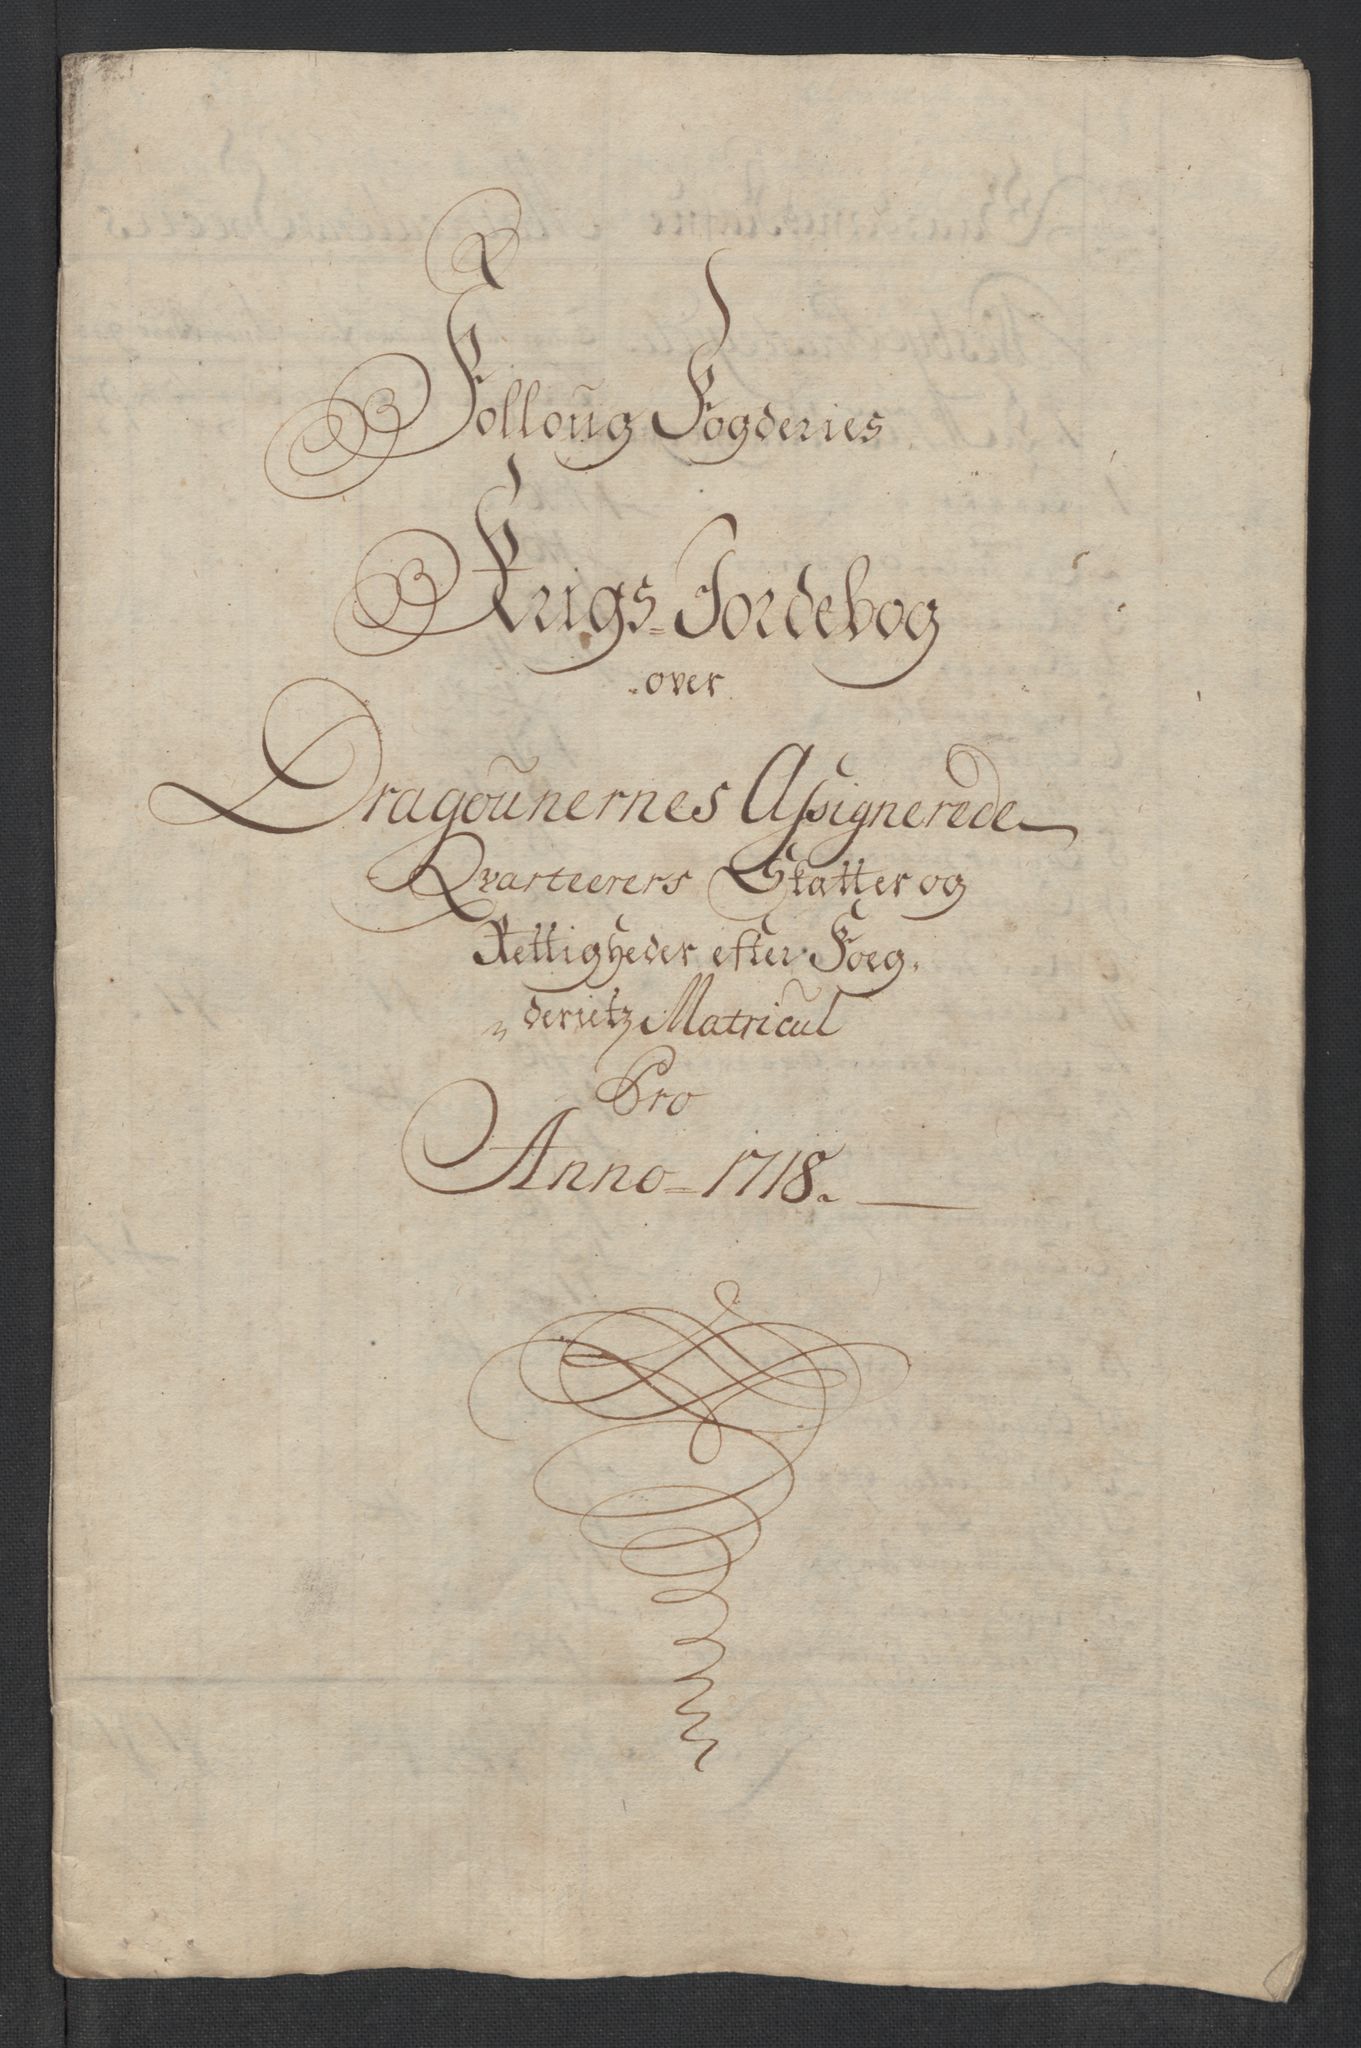 Folloug Fogderies
Krigs=Jordebog
over
Dragounernes Assignerede
Qvarteerers Skatter og
Rettigheder efter Foeg,
derietz Matricul
Pro
Anno=1718.